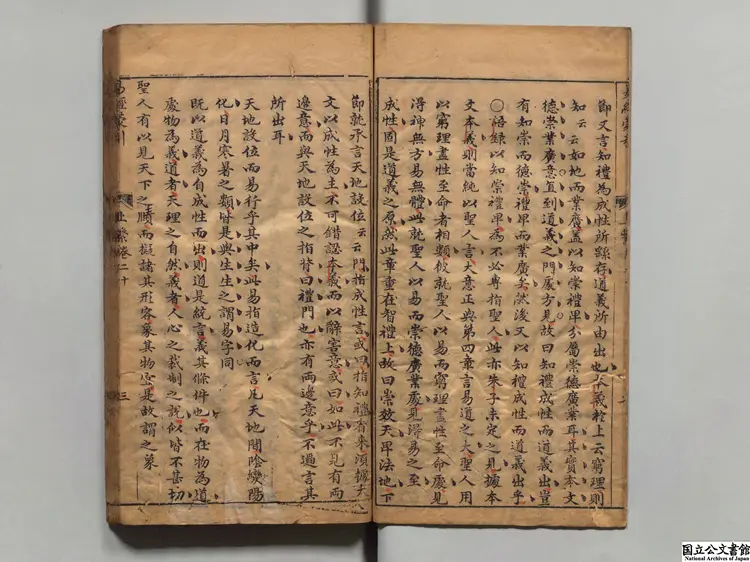 節又言知禮為成性所繇存道義所由出也本義於上云窮理則
知云云如地而業廣盖以知崇禮卑分屬崇德廣業耳其實本文
德崇業廣意直到道義之門處方見故曰知禮成性而道義出豈
有知崇而德崇禮卑而業廣矣然後又以知禮成性而道義出乎
〇語錄以知崇禮卑為不必專指聖人此亦朱子未定之見據本
文本義則當純以聖人言大意正與第四章言易道之大聖人用
以窮理盡性至命者相類彼就聖人以易而窮理盡性至命處見
得神無方易無體此就聖人以易而崇德廣業處見得易之至
成性固是道義之原然此章重在智禮上故曰崇效天卑法地下
節就承言天地設位云云門指成性言或曰指知禮有來須據大
文以成性為主不可錯認本義而以辭害意或曰如此不見有兩
邊意而與天地設位之指背曰禮門也亦有兩邊意乎不過言其
所出耳
天地設位而易行乎其中矣此易指造化而言凡天地間陰變陽
化日月寒暑之類皆是與生生之謂易字同
既以道義為自成性而出則道是統言義其條件也而在物為道
處物為義道者天理之自然義者人心之裁制之說似皆不甚切
聖人有以見天下之賾而擬諸其形容象其物宜是故謂之象
易經蒙引
上繫卷二十
三
国立公文書館
National Archives of Japan